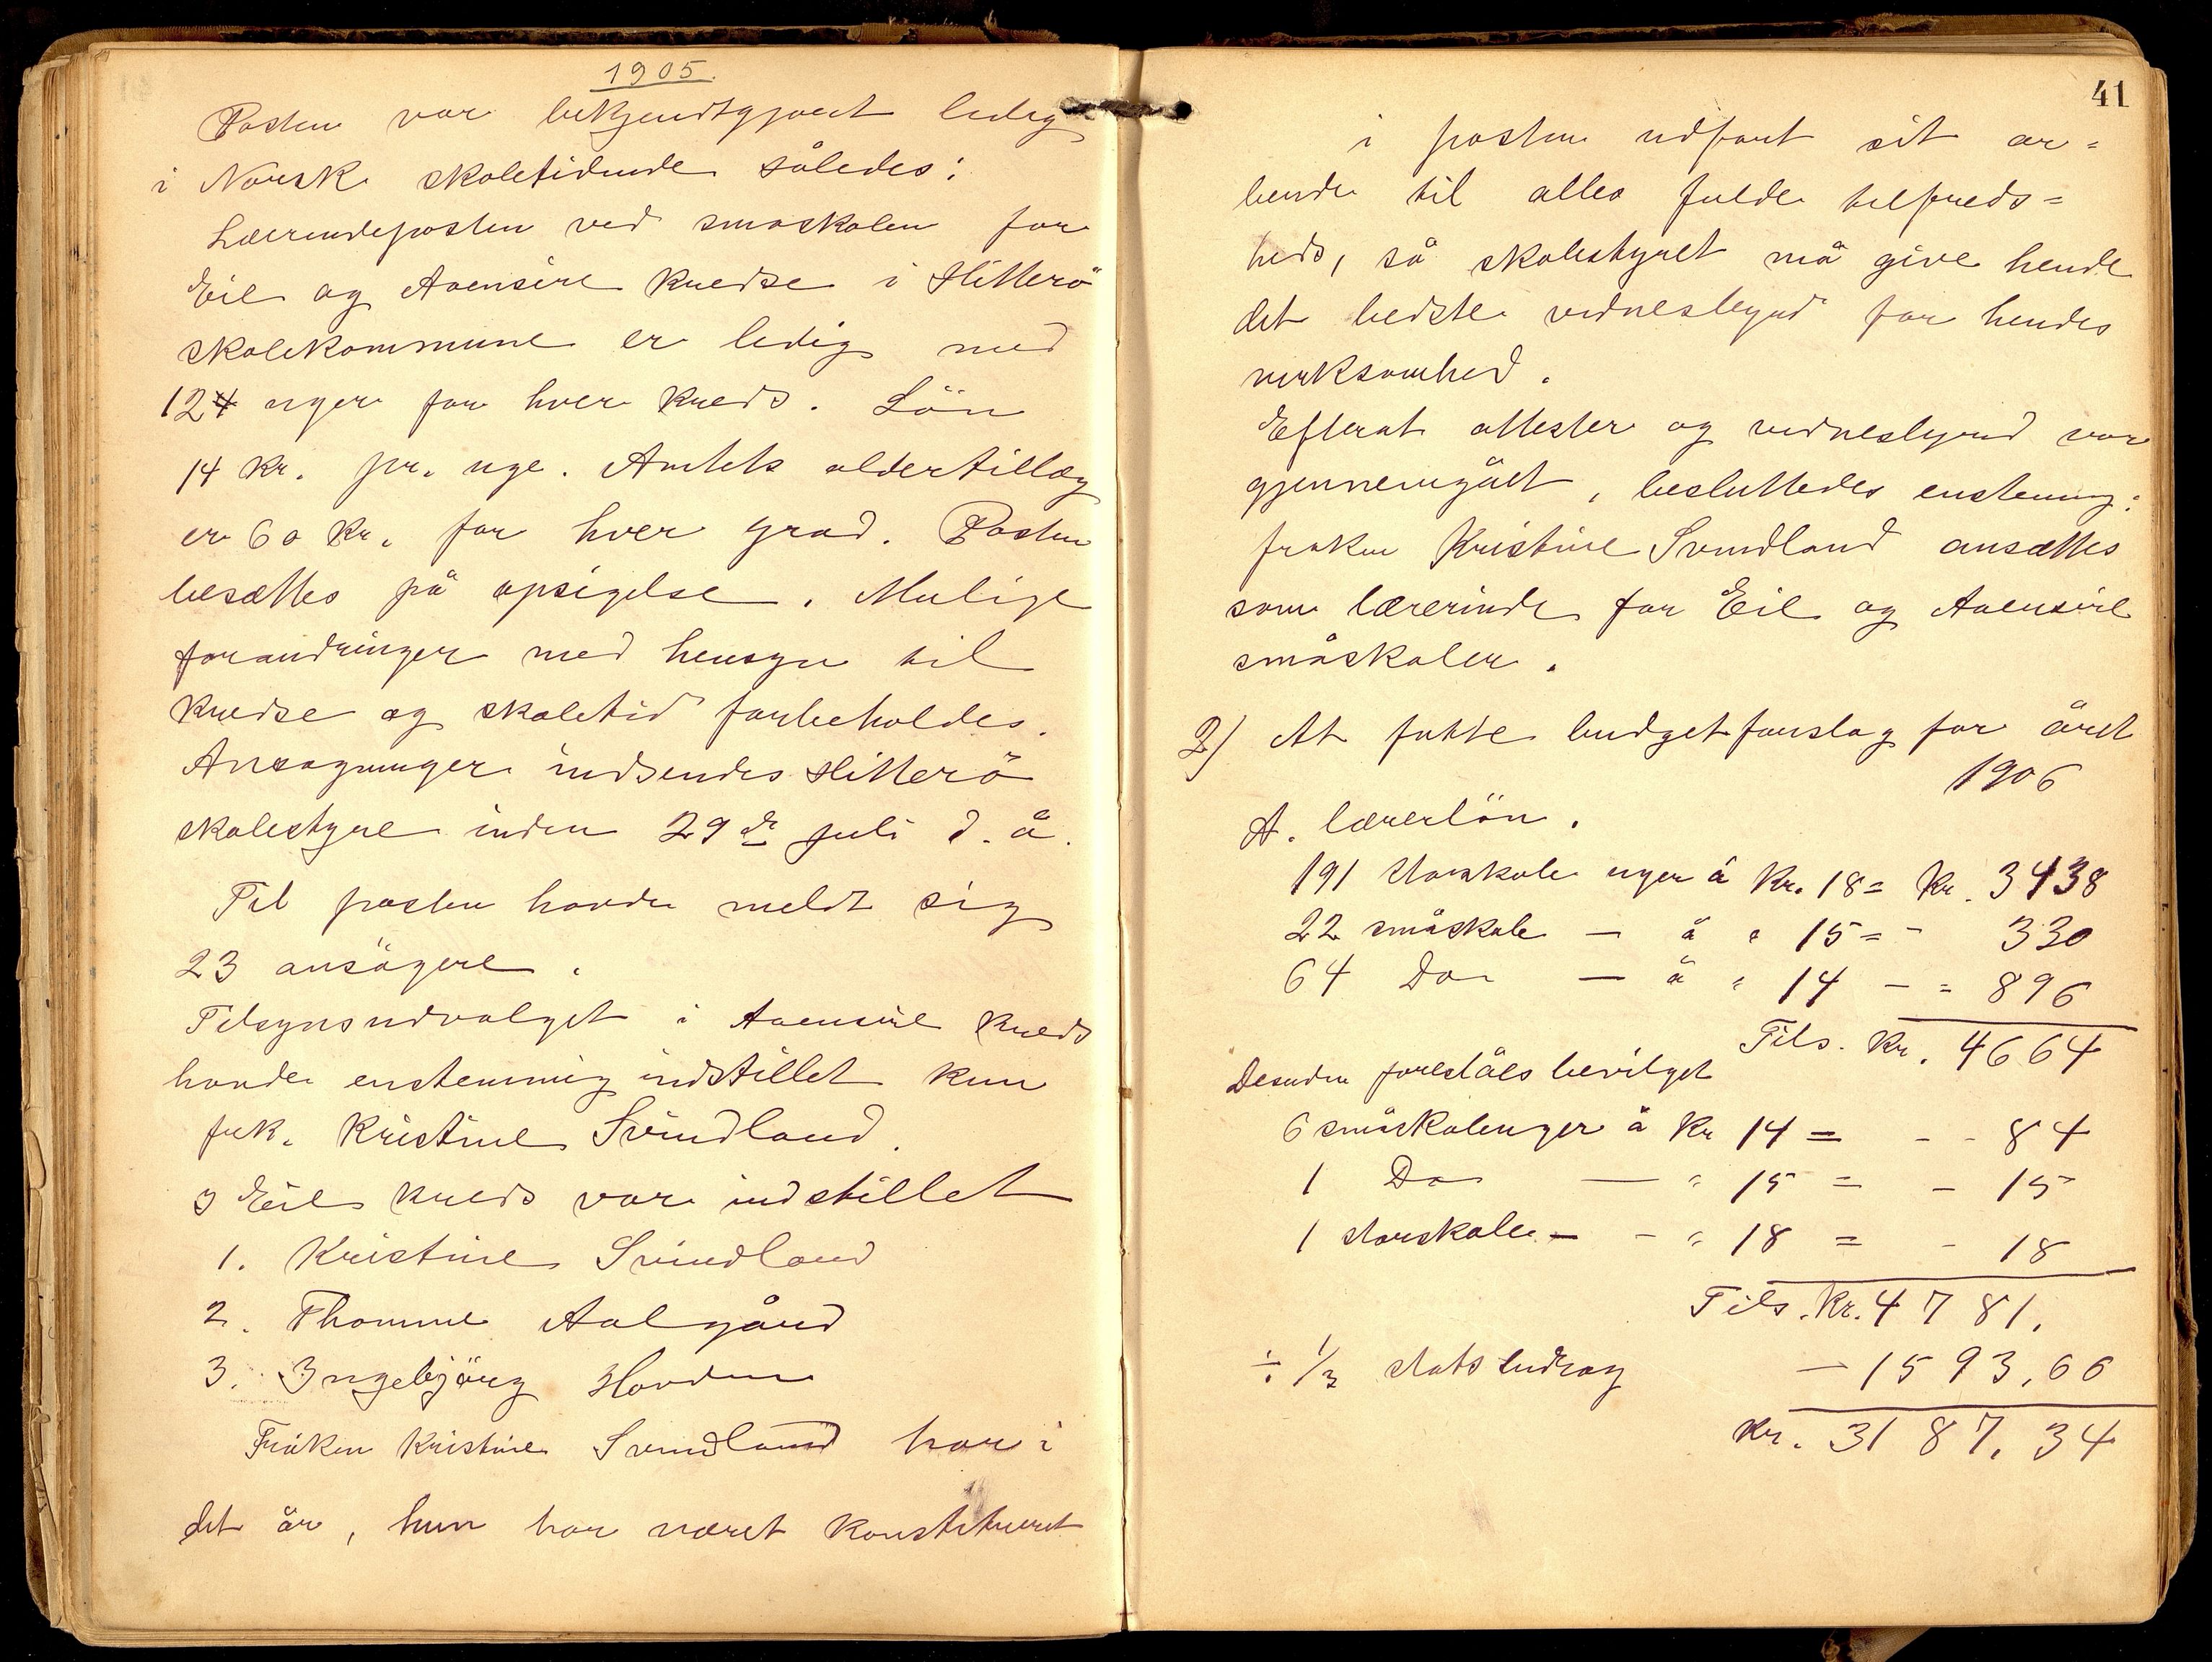 1905.
Posten var bekjendtgjort ledig
i Norsk skoletidende således:
Lærerindeposten ved småskolen for
Eie og Aaensire kredse i Hitterö
skolekommune er ledig med
12 uger for hver kreds. Lön
14 kr. pr. uge. Amtets alderstillæg
er 60 kr. for hver grad. Posten
besættes på opsigelse. Mulige
forandringer med hensyn til
kredse og skoletid forbeholdes.
Ansøgninger indsendes Hitterö
skolestyre inden 29de juli d. å.
Til posten havde meldt sig
23 ansögere.
Tilsynsudvalget i Aaensire kreds
havde enstemmig indstillet kun
frk. Kristine Svindland.
I Eie kreds var indstillet
1. Kristine Svindland
2. Thomine Aalgård
3. Ingebjörg
Fröken Kristine Svindland har i
det år, hun har været konstitueret
41
i posten udfört sit ar=
beide til alles fulde tilfreds=
heds, så skolestyret må give hende
det bedste vidnesbyrd for hendes
virksomhed.
Efterat attester og vidnesbyrd var
gjennemgået, besluttedes enstemmig:
frøken Kristine Svindland ansættes
som lærerinde for Eie og Aaensire
småskoler.
2) At fatte budgetforslag for året
1906
A. lærerlön.
191 storskole uger á Kr. 18 = Kr. 3438
22 småskole — á " 15 = - 330
64 Do — á " 14 - = 896
Tils. Kr. 4664
Desuden foreslåes bevilget
6 småskoleuger á Kr 14 = - - 84
1 Do — " 15 = - 15
1 storskole — - " 18 = - 18
Tils. Kr. 4781.
÷ 1/3 statsbidrag — 1593,66
Kr. 3187,34